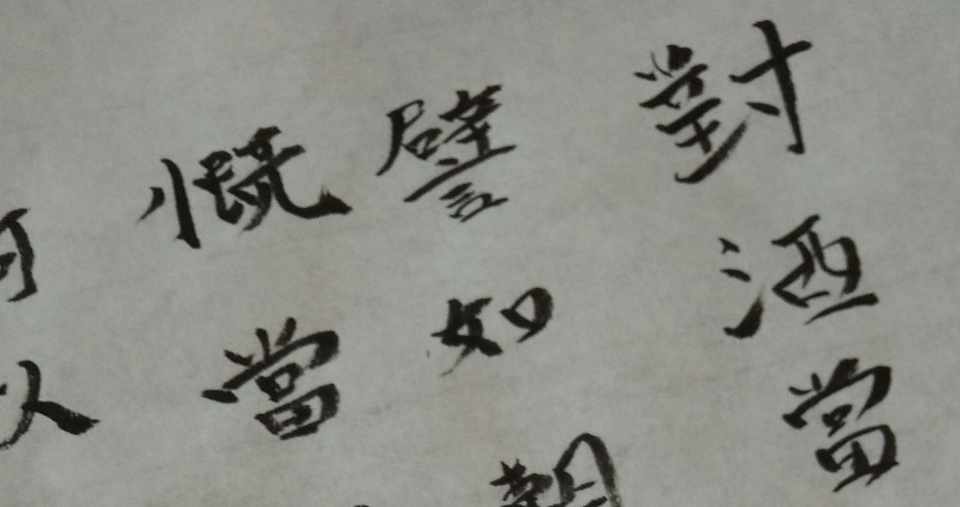 對酒當
譬如朝
慨當以
何